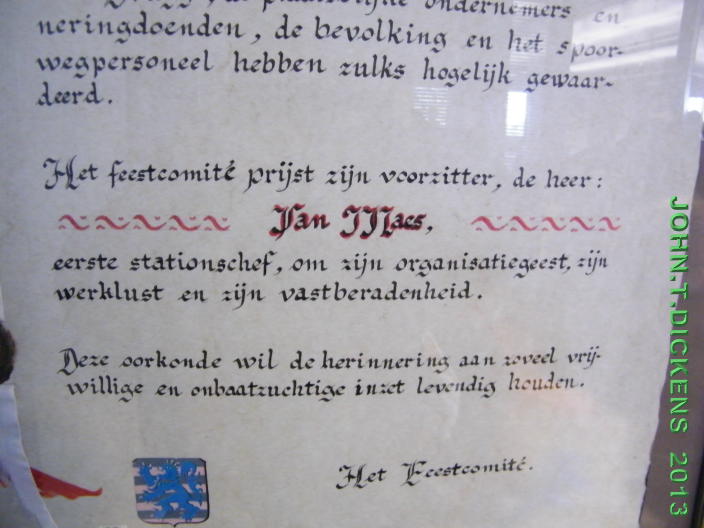 ondernemers en
neringdoenden, de bevolking en het spoor-
wegpersoneel hebben zulks hogelijk gewaar-
deerd.
Het feestcomité prijst zijn voorzitter, de heer:
Jan Maes,
eerste stationschef, om zijn organisatiegeest, zijn
werklust en zijn vastberadenheid.
Deze oorkonde wil de herinnering aan zoveel vrij-
willige en onbaatzuchtige inzet levendig houden.
Het Feestcomité.
JOHN.T.DICKENS 2013